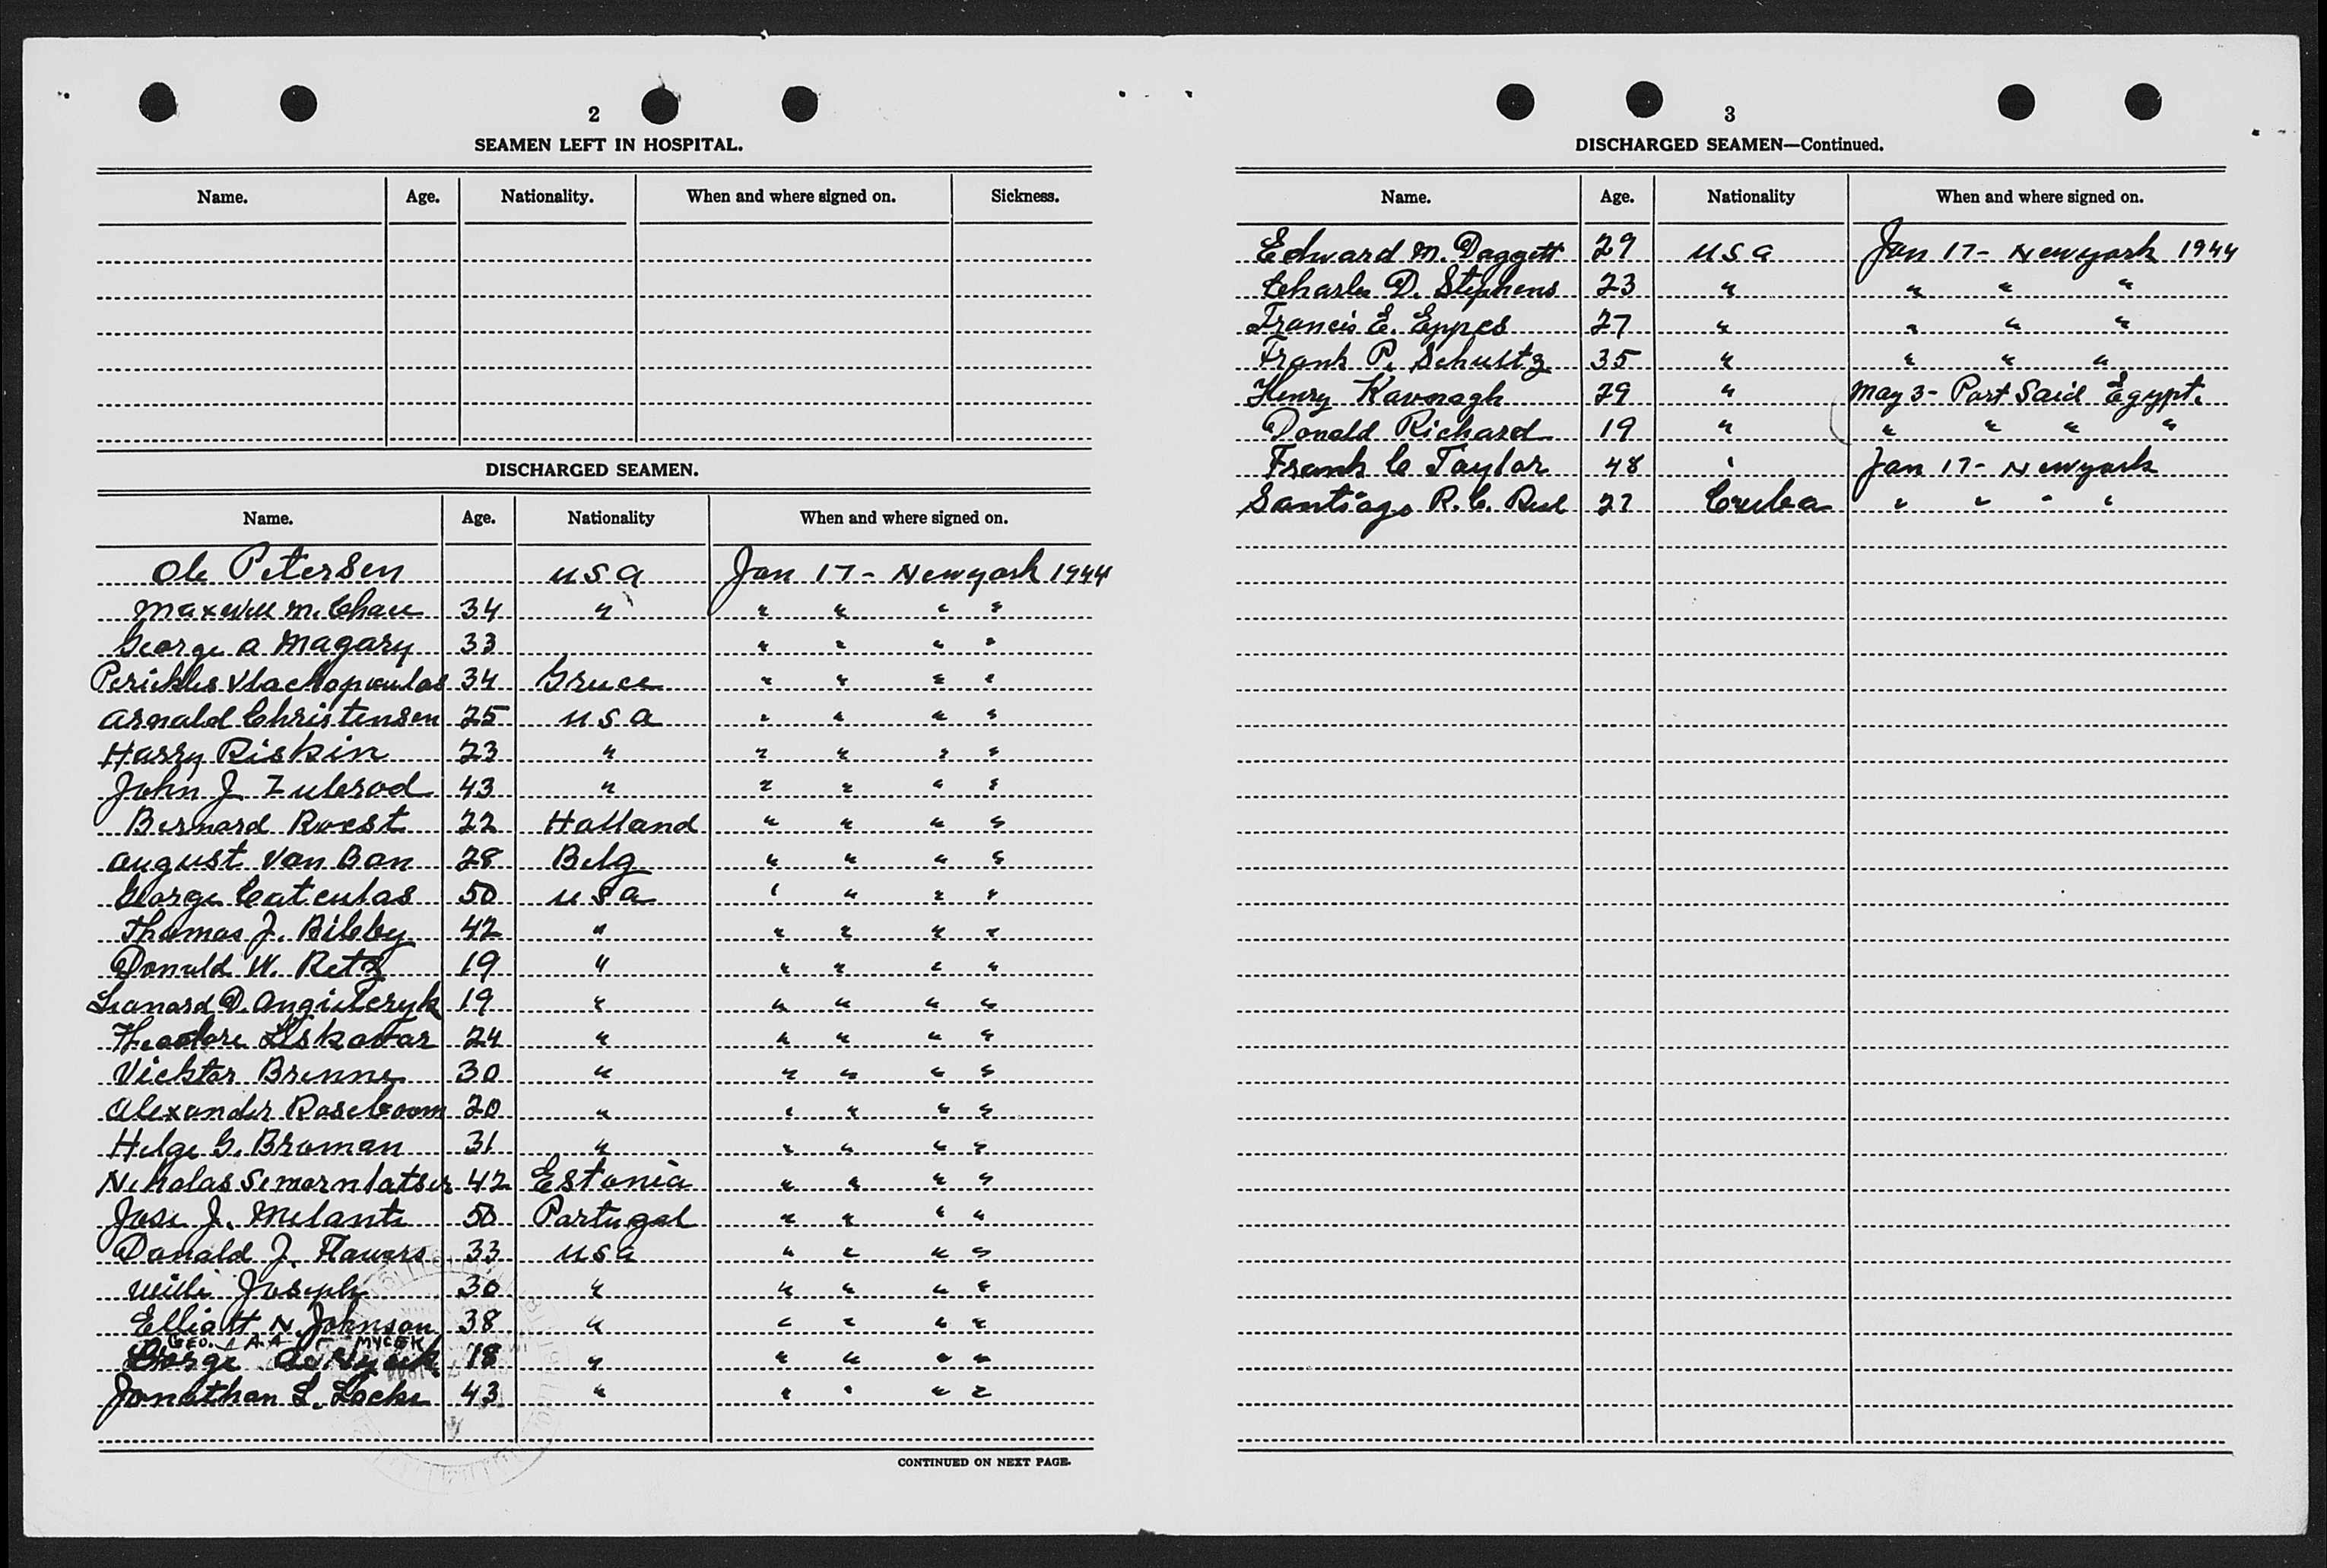 2
SEAMEN LEFT IN HOSPITAL.
Name. Age. Nationality. When and where signed on. Sickness.
DISCHARGED SEAMEN.
Name. Age. Nationality When and where signed on.
Ole Petersen USA Jan 17 - New york 1944
Maxwell M. Chase 34 " " " " "
George A Magary 33 " " " "
Perikles Vlachopoulos 34 Greece " " " "
Arnold Christensen 25 USA " " " "
Harry Riskin 23 " " " " "
John J Zulerod 43 " " " " "
Bernard Roest 22 Holland " " " "
August Van Ban 28 Belg " " " "
George Catculas 50 USA " " " "
Thomas J. Bibby 42 " " " " "
Donald W. Retz 19 " " " " "
Leonard D. 19 " " " " "
Theodore 24 " " " " "
Vicktor Brenne 30 " " " " "
Alexander Roseboom 20 " " " " "
Helge G. Broman 31 " " " " "
Nicholas 42 Estonia " " " "
Jose J. Melante 50 Portugal " " " "
Donald J. Flowers 33 USA " " " "
Willi Joseph 30 " " " " "
Elliott N. Johnson 38 " " " " "
GEO. A.A MYCEK
George 18 " " " " "
Jonathan L. Locke 43 " " " " "
CONTINUED ON NEXT PAGE.
3
DISCHARGED SEAMEN—Continued.
Name. Age. Nationality When and where signed on.
Edward M. Daggett 29 USA Jan 17 - New york 1944
Charles D. Stephens 23 " " " "
Francis E. Eppes 27 " " " "
Frank P. Schultz 35 " " " "
Henry Kavanagh 29 " May 3 - Port Said Egypt.
Donald Richard 19 " " " " "
Frank C Taylor 48 " Jan 17 - New york
Santiago R. C. 27 Cuba " " " "